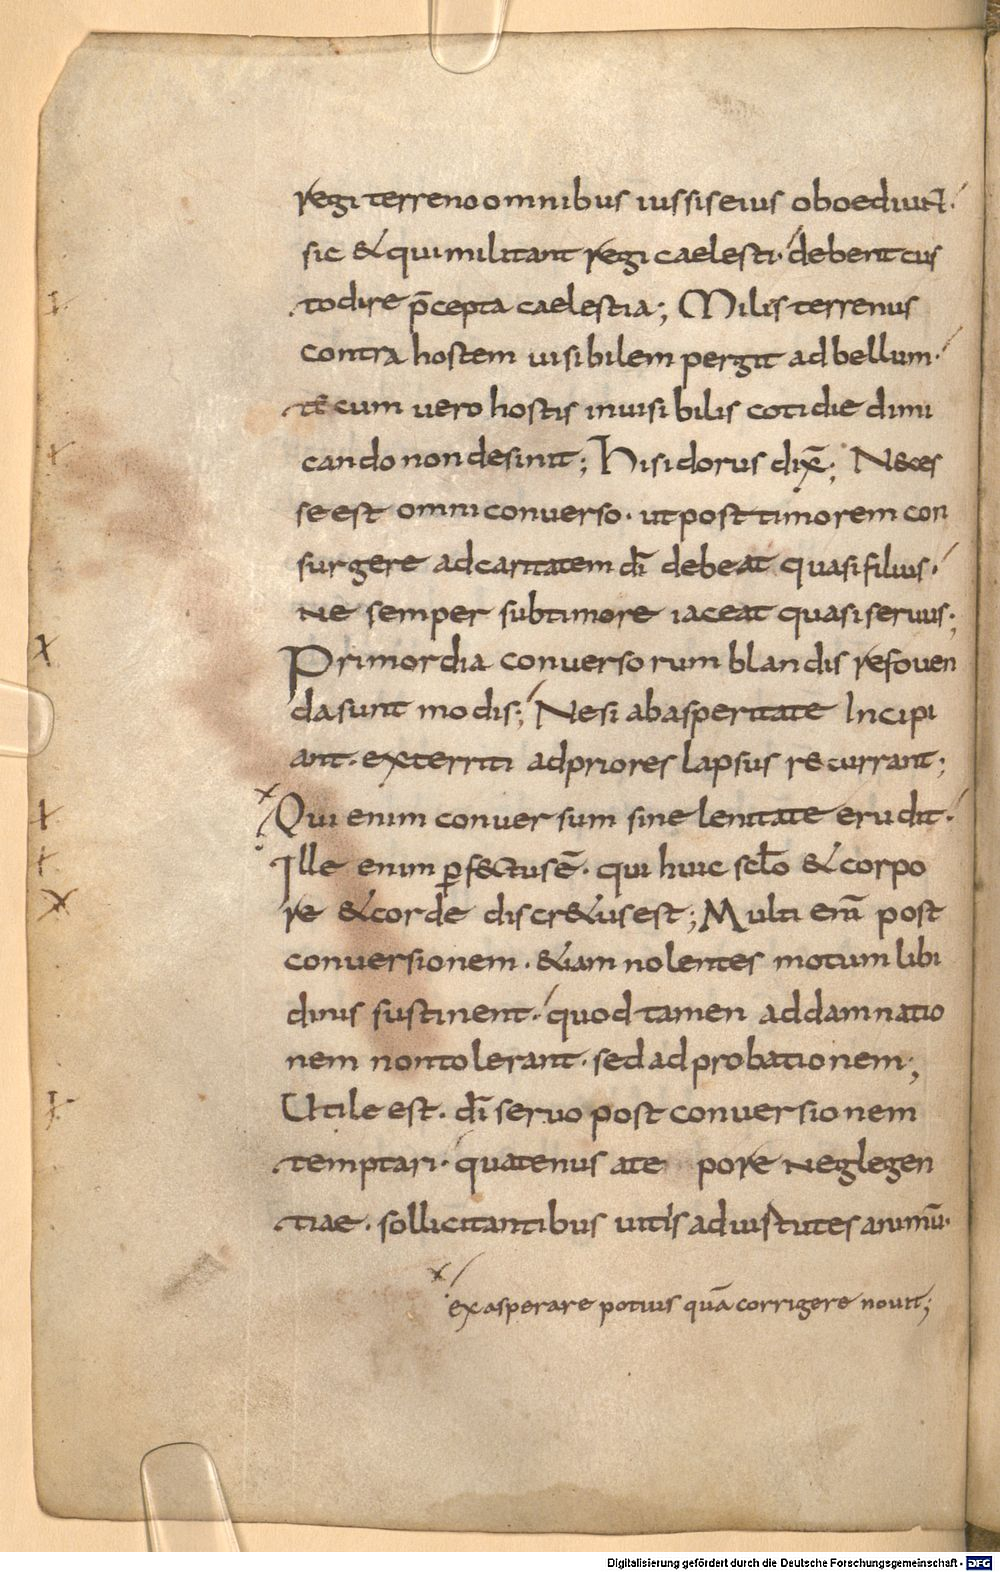 regi terreno omnibus iussis eius oboediunt·
sic & qui militant regi caelesti· debent cus
todire p̄cepta caelestia; Milis terrenus
contra hostem uisibilem pergit ad bellum·
tecum uero hostis inuisibilis cotidie dimi
cando non desinit; Hisidorus dix̄; Neces
se est omni conuerso· ut post timorem con
surgere ad caritatem dī debeat quasi filius·
ne semper sub timore iaceat quasi seruus;
Primordia conuersorum blandis refouen
da sunt modis; Ne si ab asperitate Incipi
ant· exterriti ad priores lapsus recurrant;
Qui enim conuersum sine lenitate erudit·
Ille enim ꝑfectus ē· qui huic sclo & corpo
re & corde discr&us est; Multi enī post
conuersionem· &iam nolentes motum libi
dinis sustinent· quod tamen ad damnatio
nem non tolerant· sed ad probationem;
Utile est· dī seruo post conuersionem
temptari· quatenus a te pore neglegen
tiae· sollicitantibus uitiis ad uirtutes animū·
exasperare potius quā corrigere nouit;
Digitalisierung gefördert durch die Deutsche Forschungsgemeinschaft - DFG